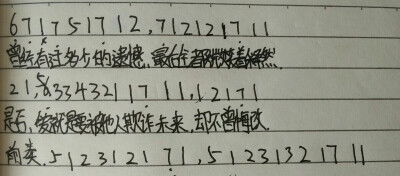 6 7 1 1 7 5 1 7 1 2 , 7 1 2 1 2 1 7 1 1
曾经有过多少的遗憾, 最后全都
2 1 , 5 6 3 3 4 3 2 1 1 7 1 1 , 1 2 1 7 1
是否, 就是要被他人欺诈未来, 却不曾悔改
前奏. 5 1 2 3 1 2 1 7 1 , 5 1 2 3 1 3 2 1 7 1 1